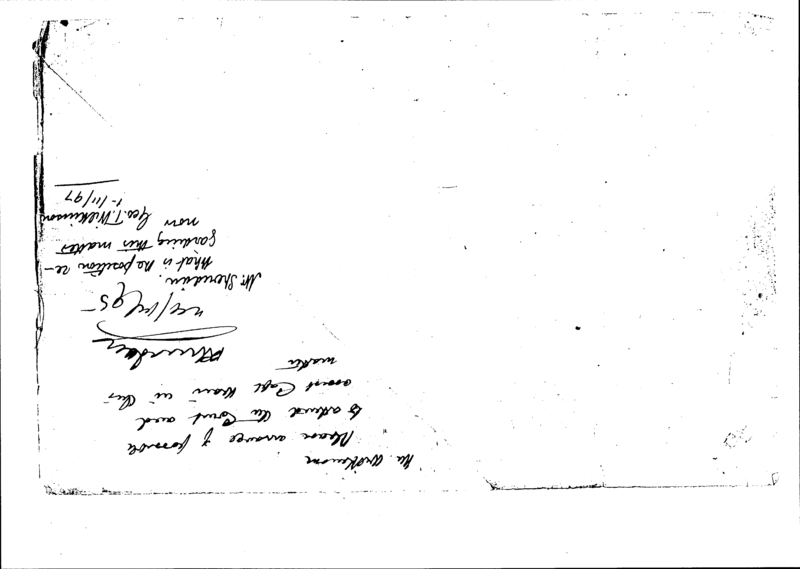 Mr. Wilkinson
Please arrange if possible
to attend the Court and
assist Capt in this
matter
24/12/95
Mr. Sheridan.
What is the position re-
garding this matter
now
Geo. T. Wilkinson
1-/11/97